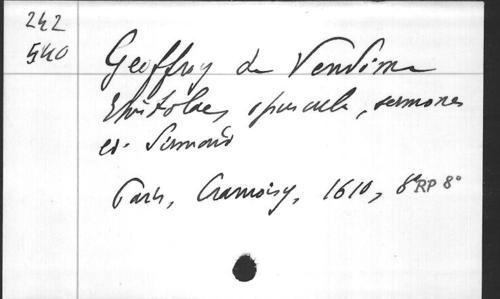 242
540
Geoffroy de Vendôme
Epistolae, opuscula, sermones
ed. Sirmond
Paris, Cramoisy, 1610, 8° RP 8°